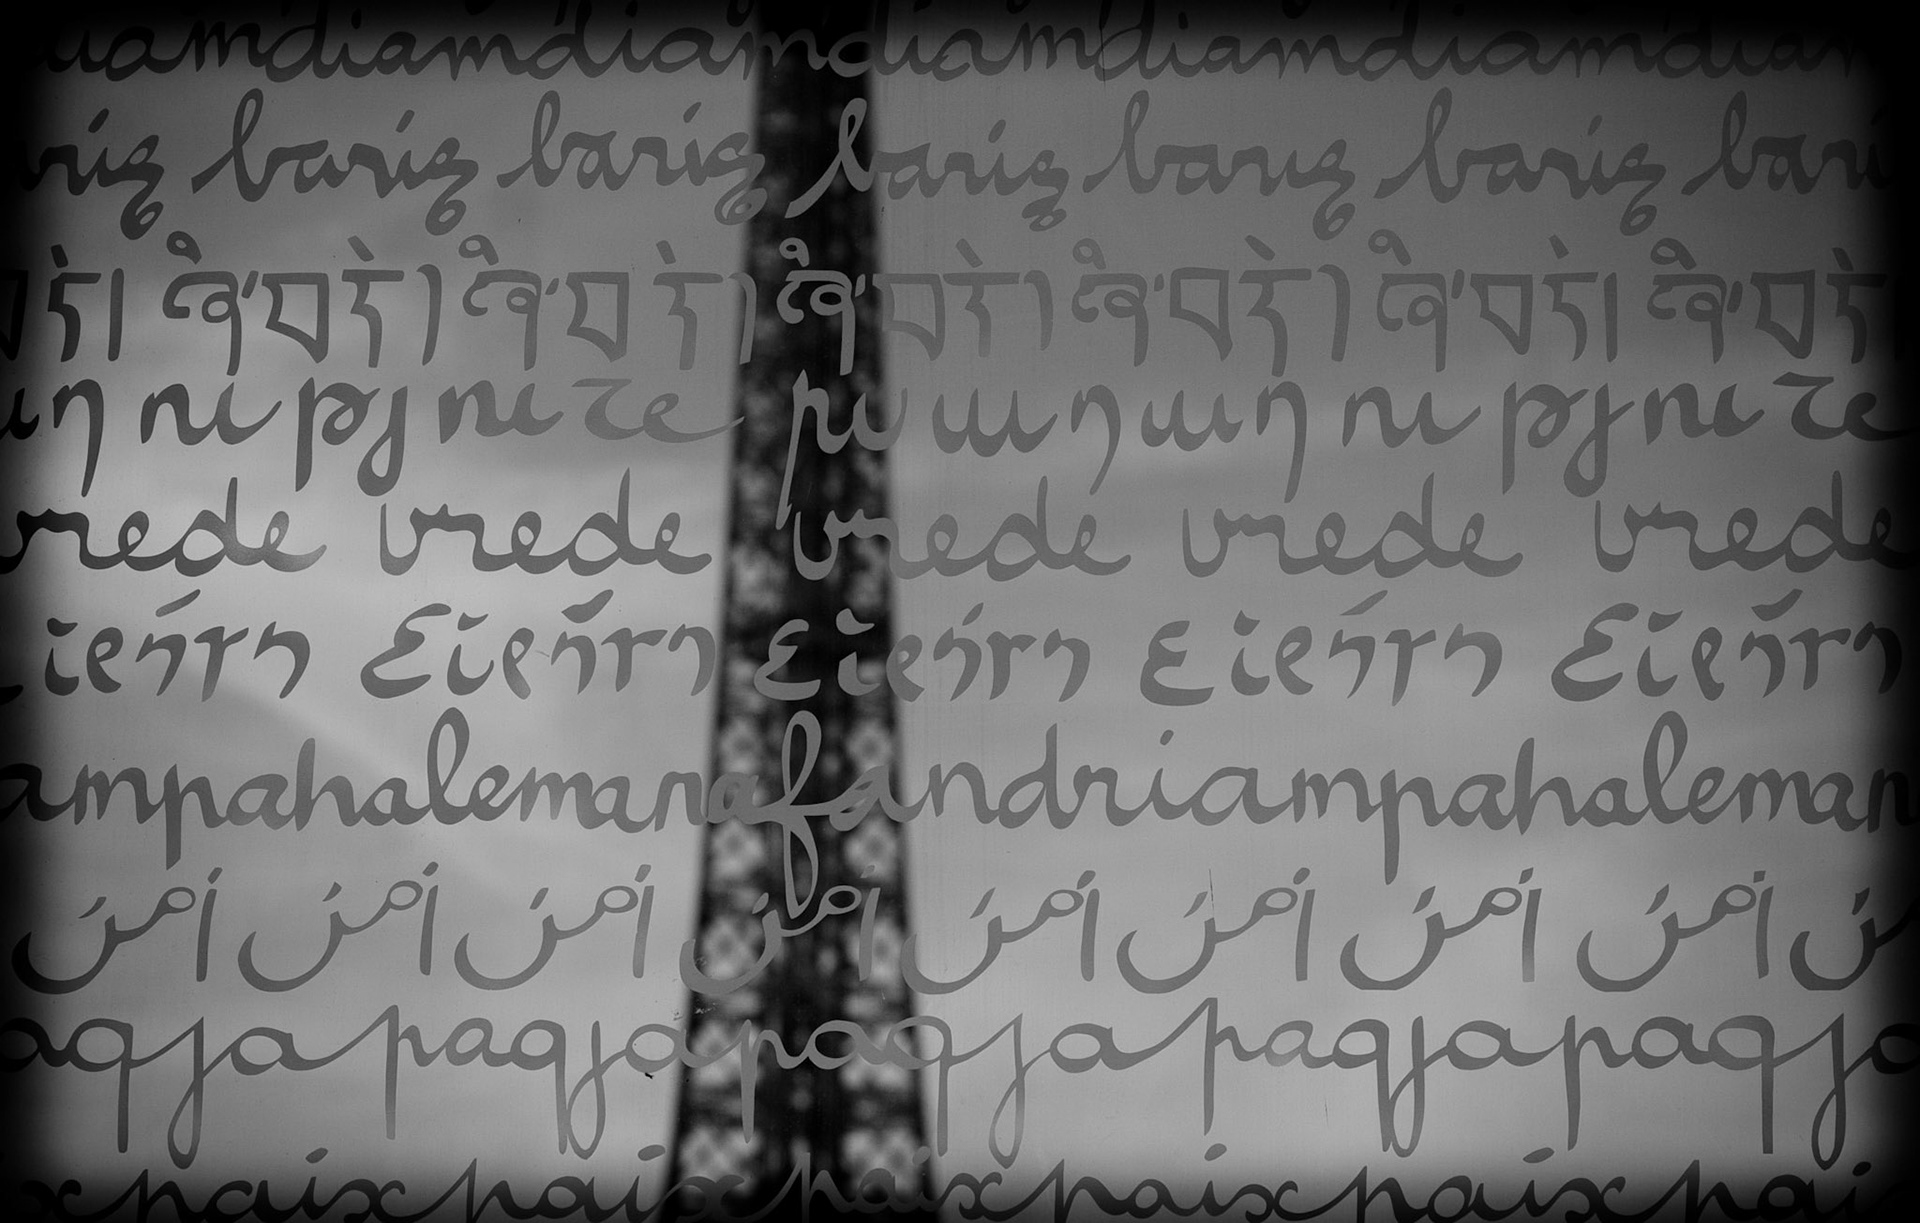 iamdiamdiamdiamdiamdiamdiam
riş bariş bariş bariş bariş bariş bari
བདེ། ཞི་བདེ། ཞི་བདེ། ཞི་བདེ། ཞི་བདེ། ཞི་བདེ། ཞི་བདེ
աղություն խաղաղություն
rede vrede vrede vrede vrede
ιρήνη Ειρήνη Ειρήνη Ειρήνη Ειρήνη
ampahalemanafandriampahaleman
أمن أمن أمن أمن أمن أمن أمن أمن
aqjapaqjapaqjapaqjapaqja
xpaixpaixpaixpaixpaixpai